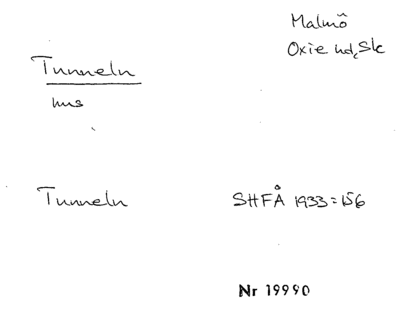 Malmö
Oxie hd, Sk
Tunneln
hus
Tunneln
SHFÅ 1933:156
Nr 19990